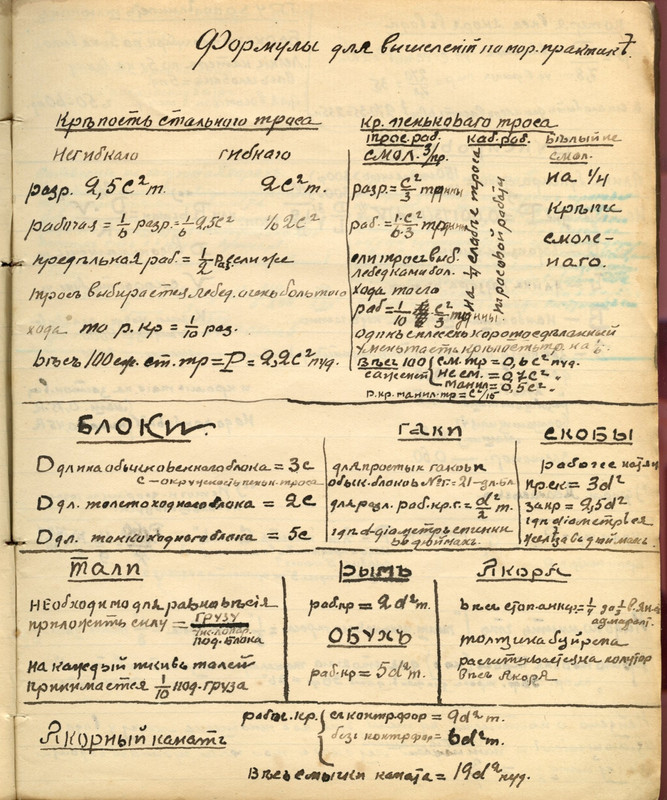 Формулы для вычисленій по мор. практикѣ. 7
Крѣпость стального троса
Негибкаго гибкаго
разр. 2,5c²т. 2c²т.
рабочая = 1/6 разр. = 1/6 2,5c² 1/6 2c²
предѣльная раб. = 1/2 раз. если же
тросъ выбирается лебед. очень большого
хода то р. кр = 1/10 раз.
вѣсъ 100 саж. ст. тр = P = 2,2c² пуд.
Кр. пеньковаго троса
трос. раб. каб. раб. Бѣлый не
смол. 3/пр. смол.
разр = c²/3 тонны
раб. = 1·c²/6·3 тонны
если тросъ выб.
лебедками бол.
хода то его
раб = 1/10 c²/3 тонны
на 1/4 слабѣе троса
тросовой работы
на 1/4
крѣпче
смоле-
наго.
одинъ сплесень короткосдѣланный
уменьшаетъ крѣпость тр. на 1/8
Вѣсъ 100 саженей { см. тр = 0,6c² пуд.
не см. = 0,7c² "
манил = 0,5c² "
р. кр. манил. тр = c²/15
Блоки
D длина обыкновеннаго блока = 3c
c – окружность пеньк. троса
D дл. толстоходнаго блока = 2c
D дл. тонкоходнаго блока = 5c
гаки
для простых гаков и
обык. блоков
для разл. раб. кр. г. = d²/2 т.
гдѣ d діаметръ спинки
въ дюймах.
скобы
рабочее натяж.
пр. ск = 3d²
закр = 2,5d²
гдѣ діаметръ ея
желѣза въ дюймах.
тали
необходимо для равновѣсія
приложить силу = грузу / числ. лопар. под. блока
на каждый шкивъ талей
принимается 1/10 под. груза
рымъ
раб. кр = 2d² т.
обухъ
раб. кр = 5d² т.
Якоря
вѣсъ стоп-анкер = 1/4 до 1/3 в. як.
адмиралт.
толщина буйрепа
расчитывается на полутор
вѣсъ якоря
Якорный канатъ
рабоч. кр. { съ контрфор = 9d² т.
безъ контрфор = 6d² т.
Вѣсъ смычки каната = 19d² пуд.